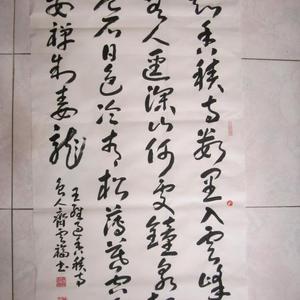 知香積寺數里入雲峰
無人徑深山何處鐘泉
危石日色冷青松薄暮空
安禪制毒龍
王維過香積寺
人齊雲福書